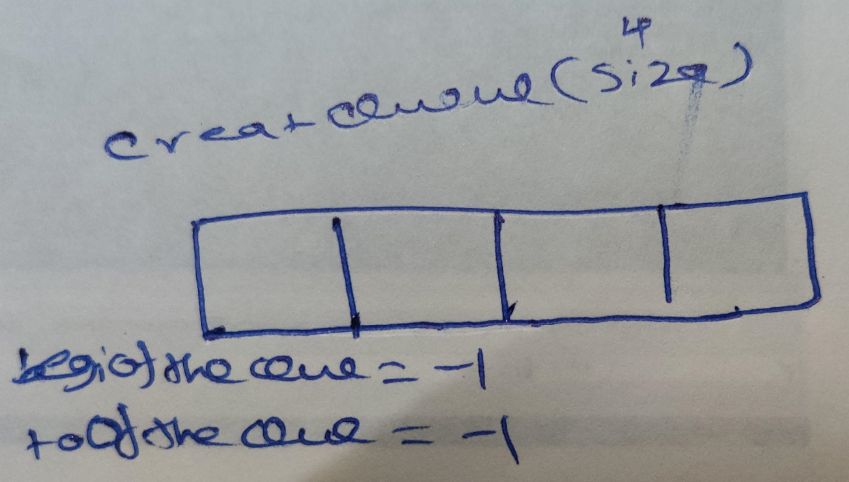 4
creatQueue(size)
begiofthe Queue = -1
toOfthe Queue = -1